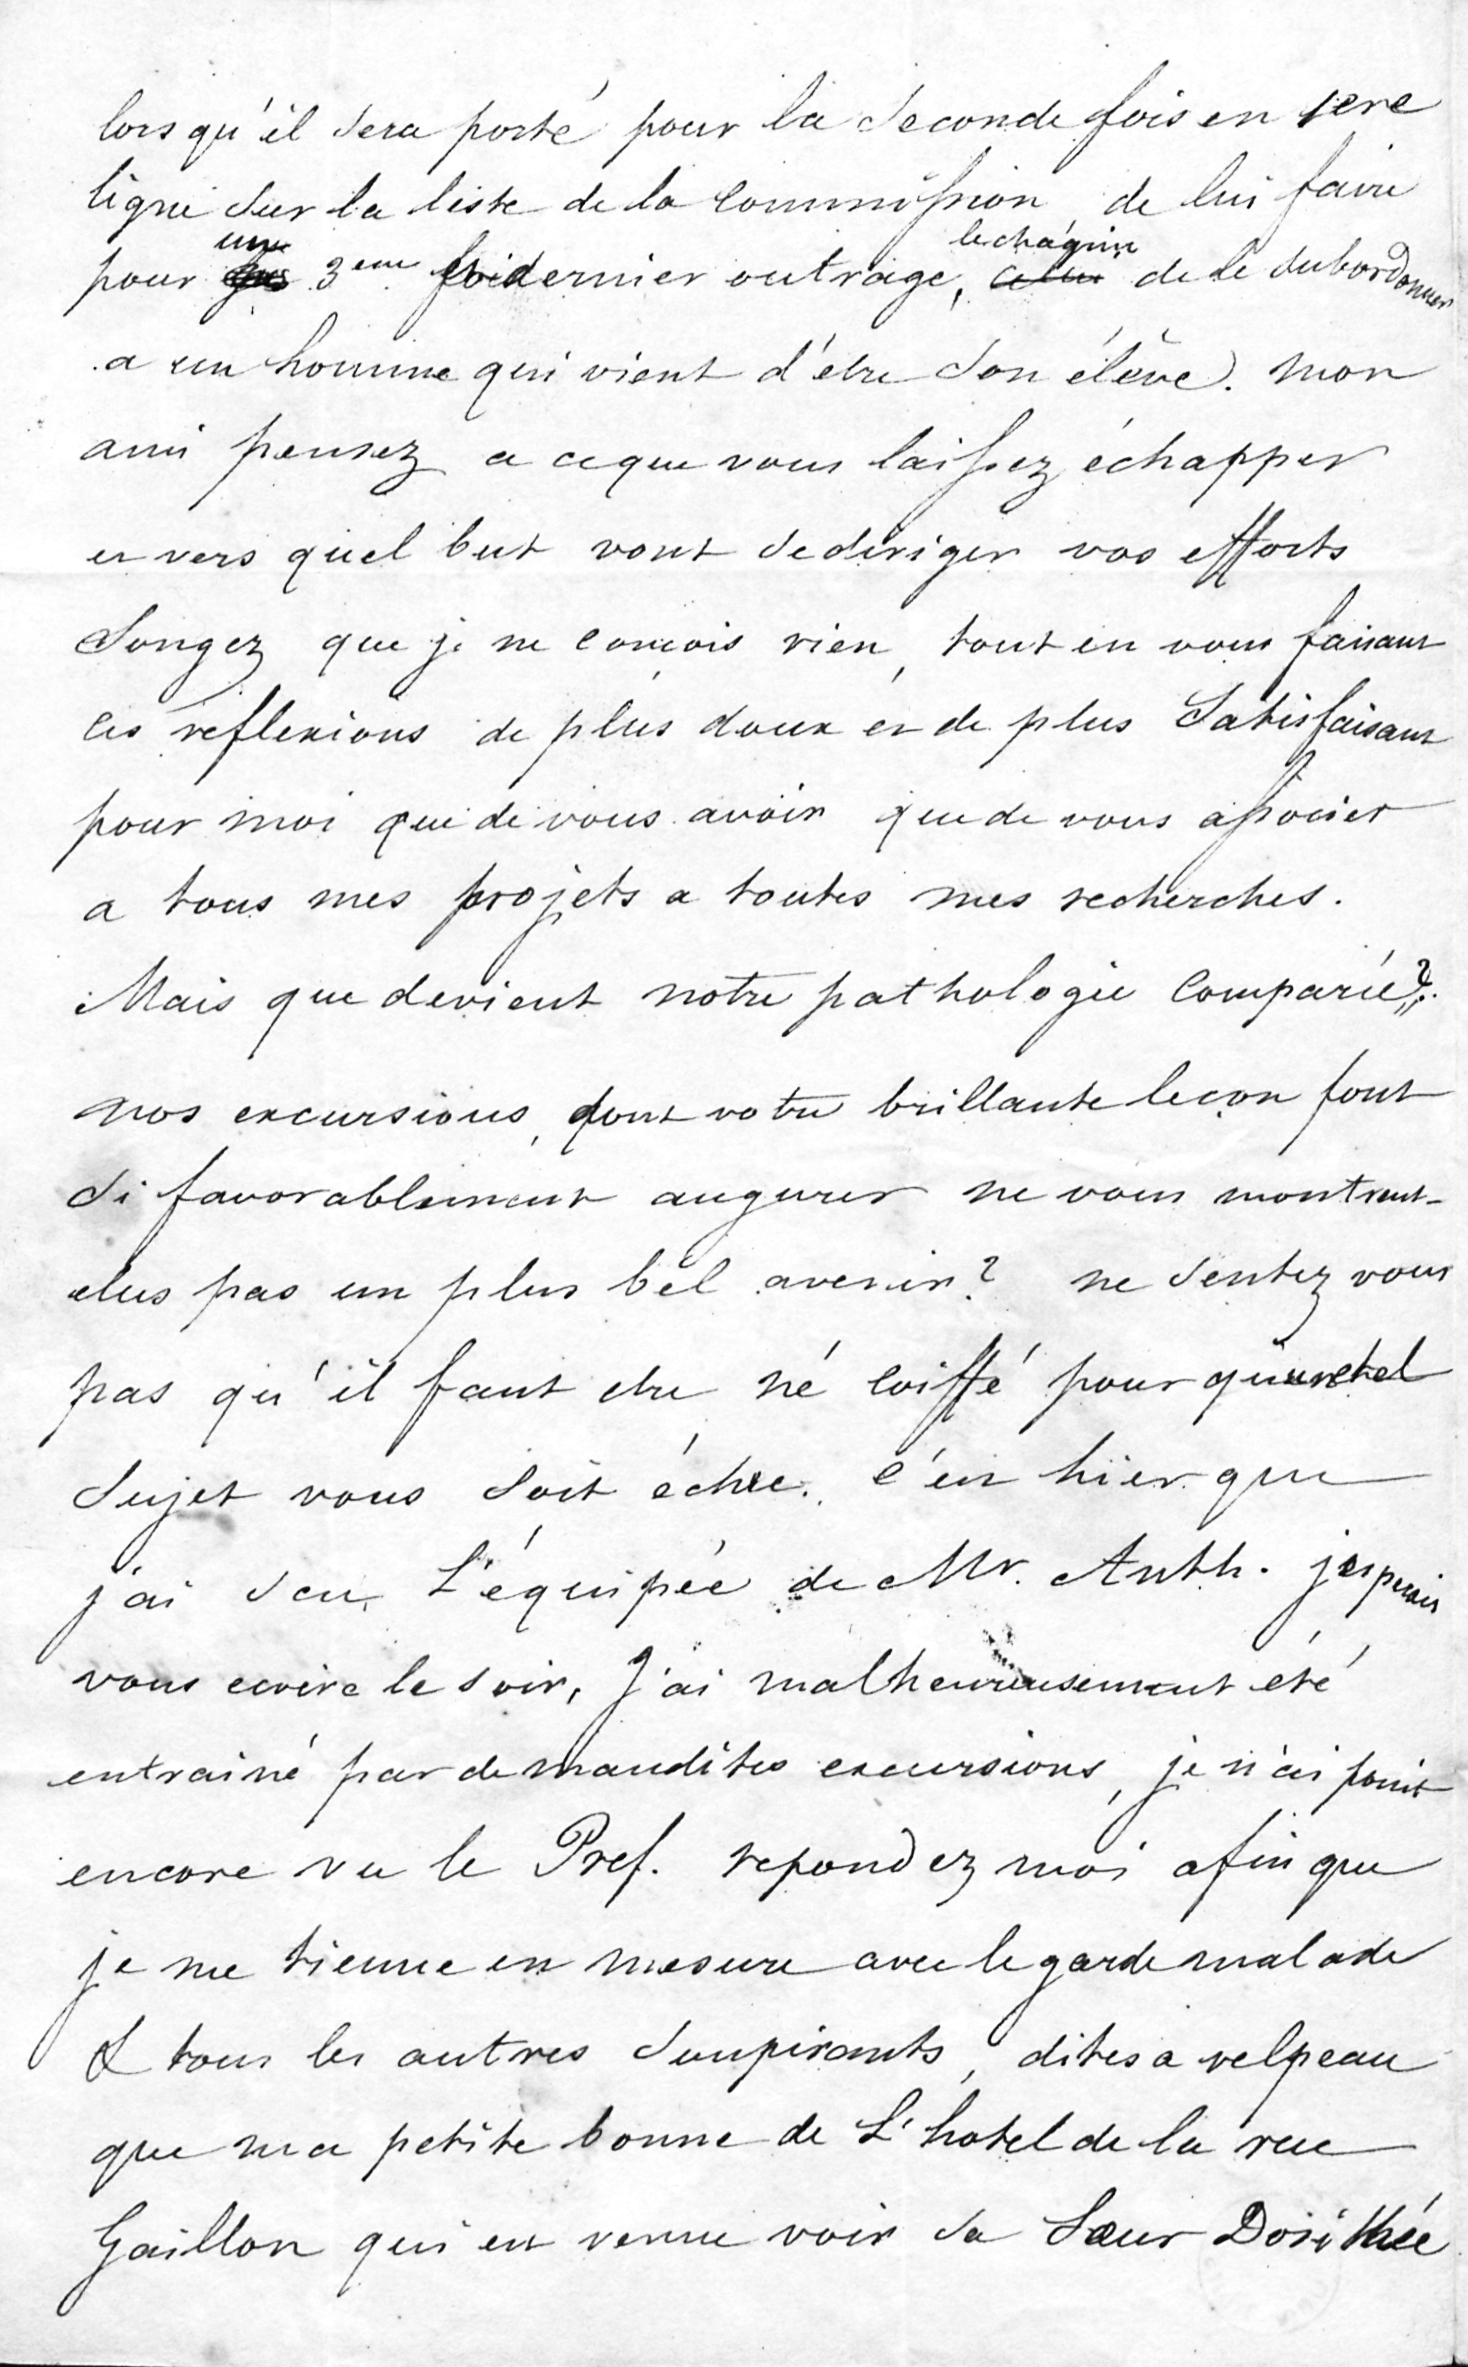 lorsqu'il sera porté pour la seconde fois en 1ere
ligne sur la liste de la commission, de lui faire
pour une 3eme foi dernier outrage, le chagrin de le subordonner
a un homme qui vient d'être son élève. mon
ami pensez a ce que vous laissez échapper
et vers quel but vont se diriger vos efforts
Songez que je ne concois rien, tout en vous faisant
ces reflexions de plus doux et de plus satisfaisant
pour moi que de vous avoir que de vous associer
a tous mes projets a toutes mes recherches.
Mais que devient notre pathologie comparée?
nos excursions, dont votre brillante lecon font
si favorablement augurer ne vous montrent-
elles pas un plus bel avenir? ne sentez vous
pas qu'il faut etre né coiffé pour qu'un tel
sujet vous soit échu. c'est hier que
j'ai scu L'équipée de Mr. Anth. j'esperais
vous ecrire le soir, j'ai malheureusement été
entrainé par de maudites excursions, je n'ai point
encore vu le Pref. repondez moi afin que
je me tienne en mesure avec le garde malade
& tous les autres soupirants, dites a velpeau
que ma petite bonne de L'hotel de la rue
Gaillon qui est venue voir sa Sœur Dosithée